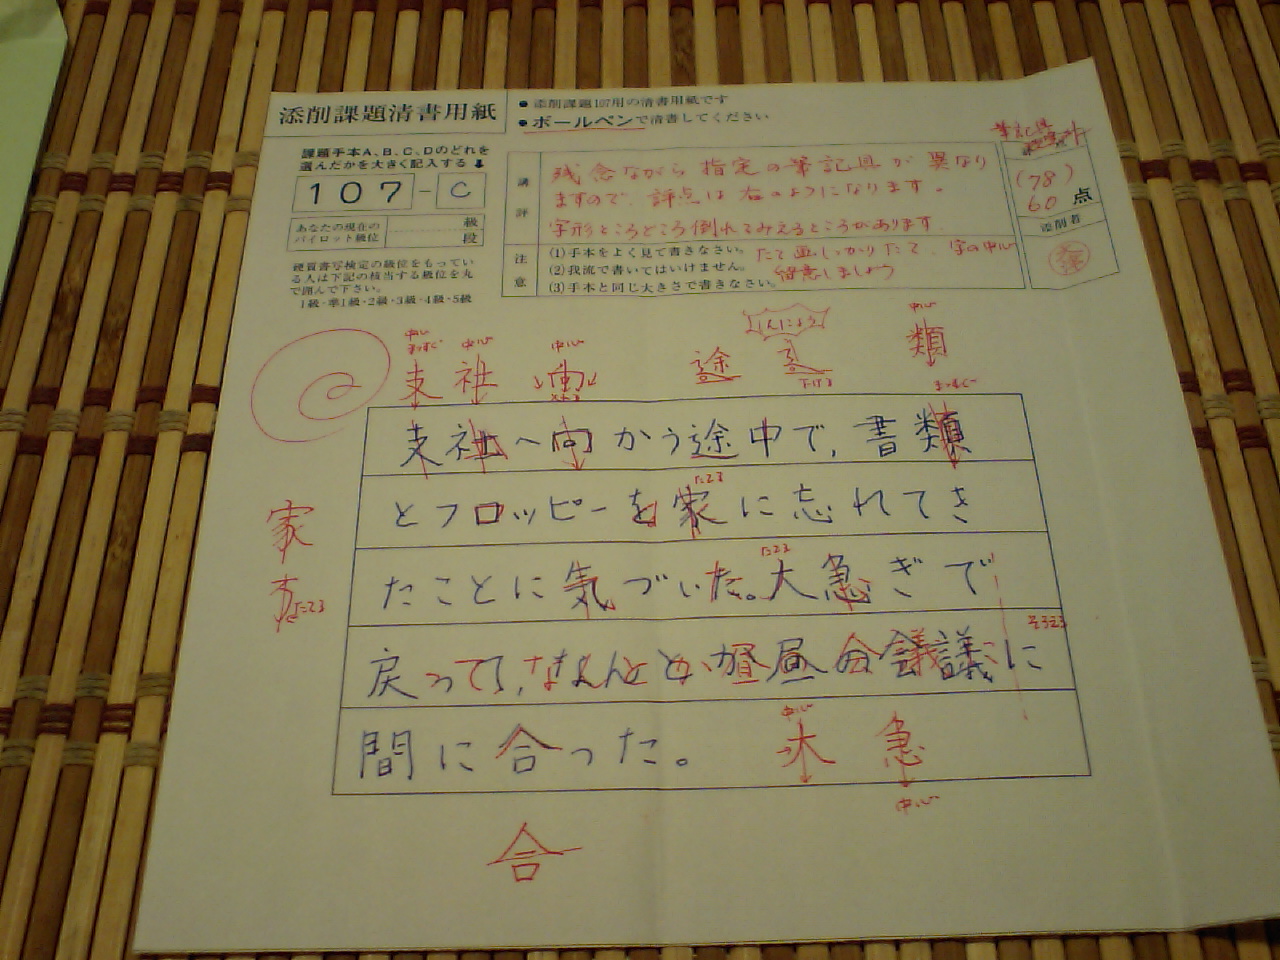 添削課題清書用紙
● 添削課題107用の清書用紙です
● ボールペンで清書してください
課題手本A、B、C、Dのどれを
選んだかを大きく記入する
107-C
あなたの現在の
パイロット級位
級
段
硬質書写検定の級位をもってい
る人は下記の該当する級位を丸
で囲んで下さい。
1級・準1級・2級・3級・4級・5級
講評
残念ながら指定の筆記具が異なり
ますので、評点は右のようになります。
字形ところどころ倒れてみえるところがあります
注意
(1)手本をよく見て書きなさい。
(2)我流で書いてはいけません。
(3)手本と同じ大きさで書きなさい。
たて画しっかりたて、字の中心
留意しましょう
(78)
60 点
添削者
中心
まっすぐ
支
中心
社
中心
向
途
しんにょう
中心
類
支社へ向かう途中で、書類
とフロッピーを家に忘れてき
たことに気づいた。大急ぎで
戻って、なんとか昼の会議に
間に合った。
家
たてる
たてる
たてる
そろえる
中心
大
急
中心
合